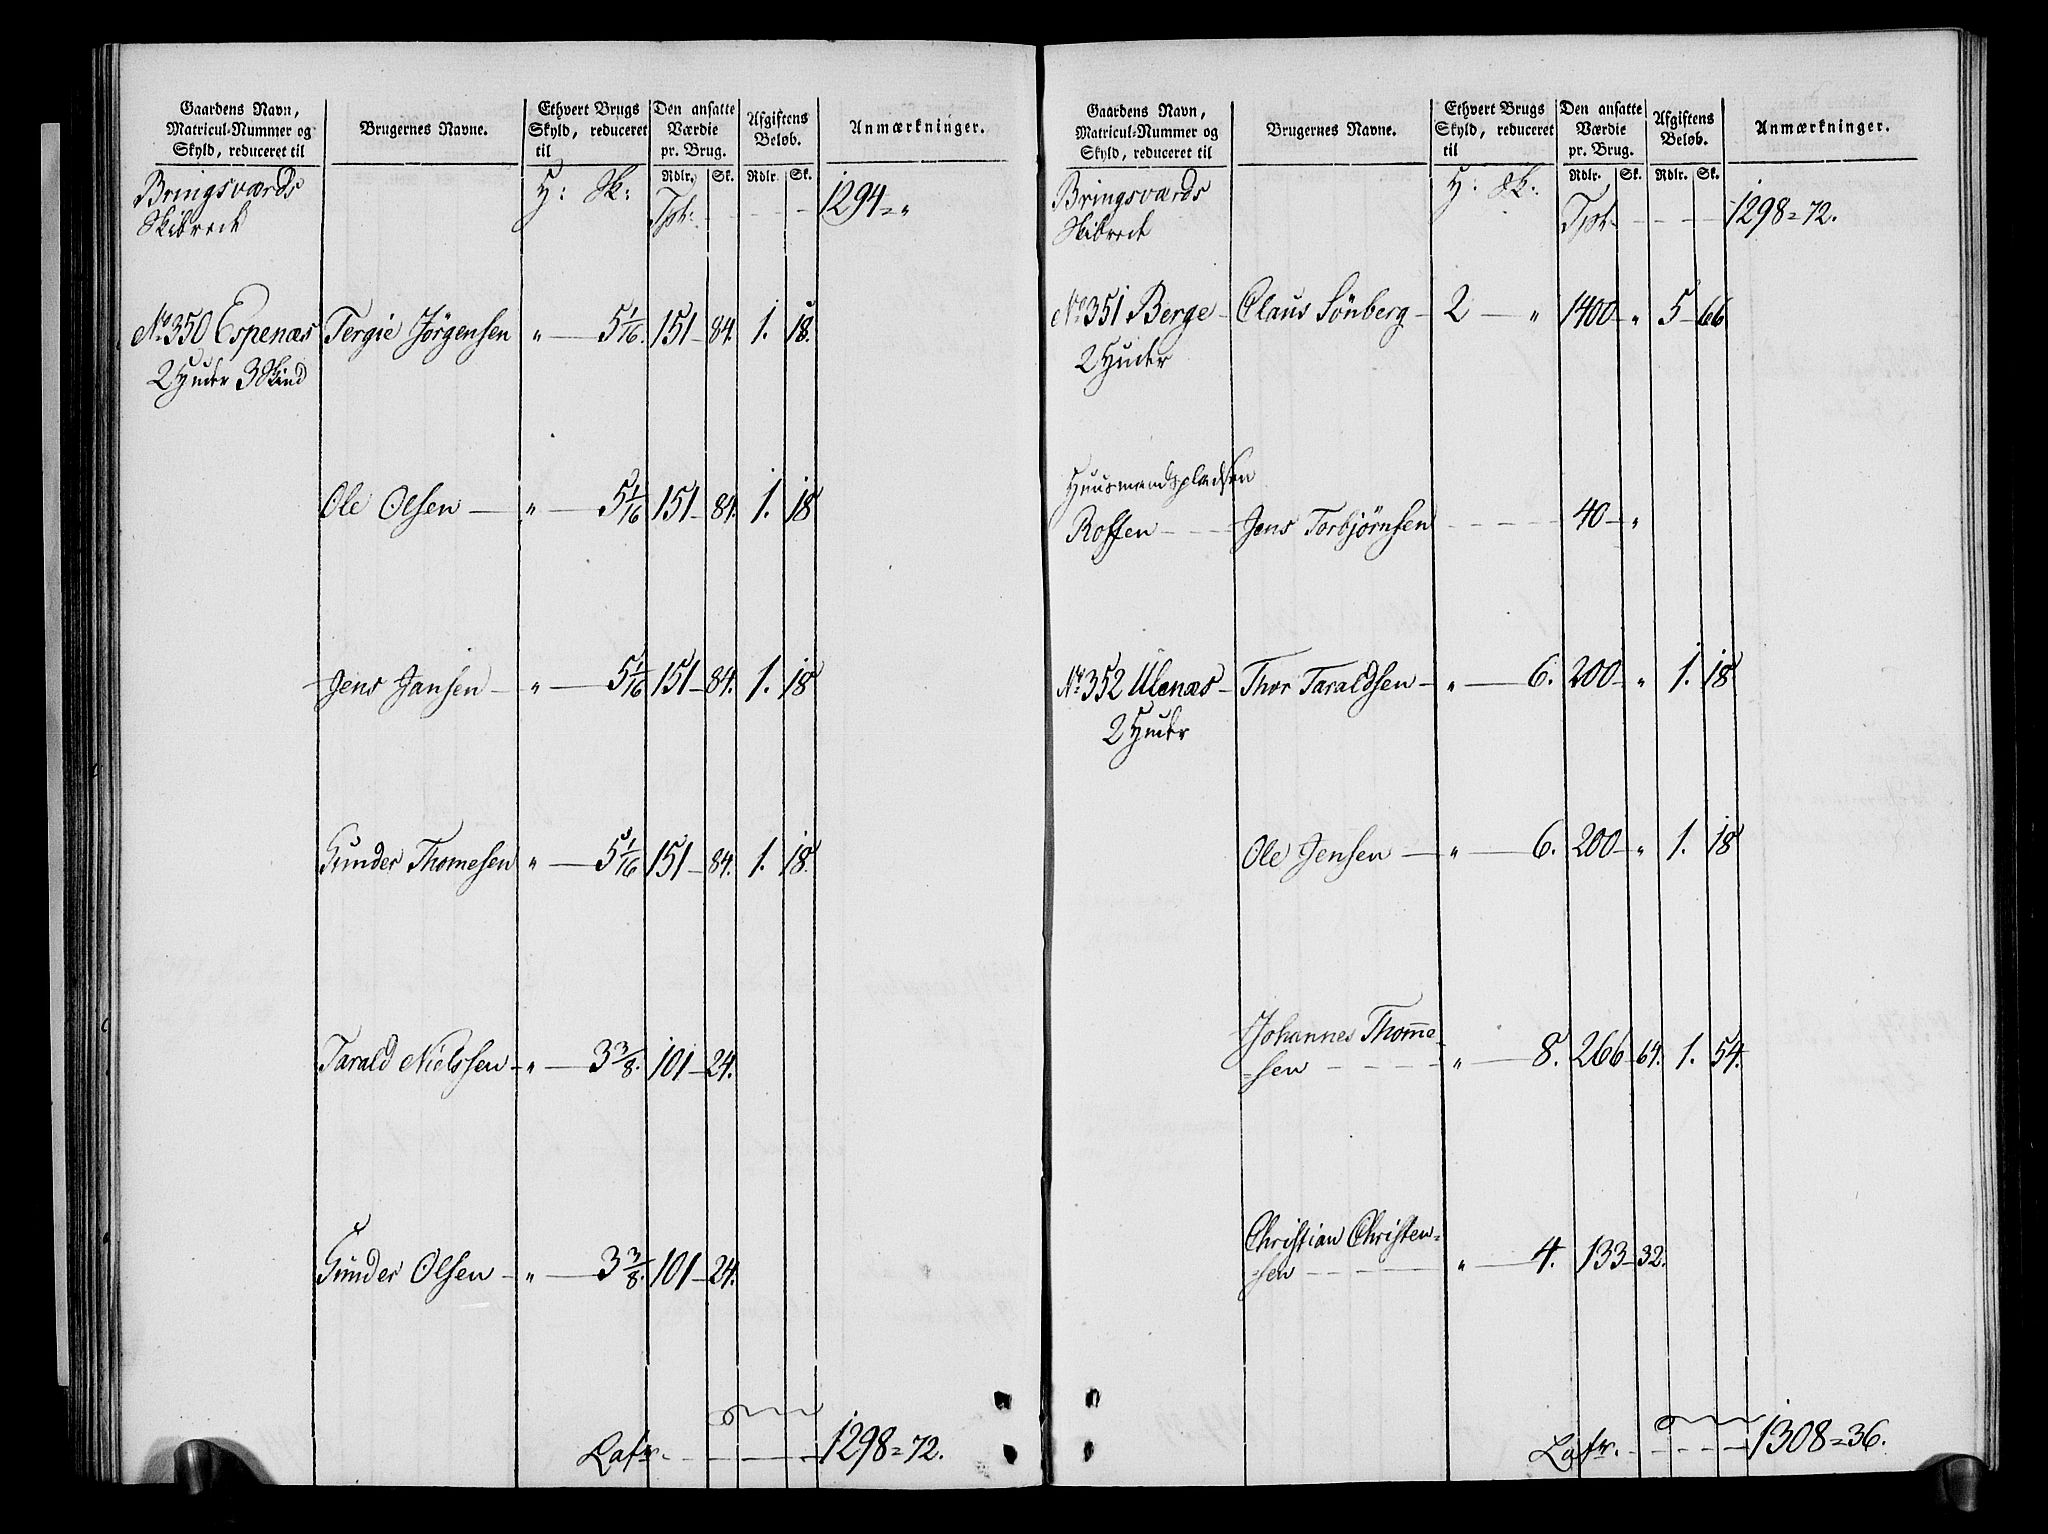 Gaardens Navn, Matricul-Nummer og Skyld, reduceret til | Brugernes Navne. | Ethvert Brugs Skyld, reduceret til | Den ansatte Værdie pr. Brug. | Afgiftens Beløb. | Anmærkninger.
Rdlr. Sk. Rdlr. Sk.
Bringsværds H: Sk: Tpt: - - - - 1294 = "
Skibred
No 350 Espenæs Tergie Jörgensen " — 5 1/16. 151 - 84. 1. 18.
2 Huder 3 Skind
Ole Olsen — " — 5 1/16 151 - 84. 1. 18
Jens Jansen — " — 5 1/16 151 - 84. 1. 18
Gunder Thomesen " — 5 1/16 151 - 84. 1. 18.
Tarald Nielssen - " — 3 3/8. 101 - 24.
Gunder Olsen - " — 3 3/8. 101 - 24.
Lafr. - - - - 1298 = 72.
Gaardens Navn, Matricul-Nummer og Skyld, reduceret til | Brugernes Navne. | Ethvert Brugs Skyld, reduceret til | Den ansatte Værdie pr. Brug. | Afgiftens Beløb. | Anmærkninger.
Rdlr. Sk. Rdlr. Sk.
Bringsværds H: Sk: Tpt - - - - 1298 = 72.
Skibred
No 351 Berge - Claus Sönberg - 2 — " 1400 - " 5 - 66
2 Huder
Huusmandspladsen
Roffen - - - Jens Torbjørnsen - - - - 40 - "
No 352 Ulenæs - Thor Taraldsen - " — 6. 200 - " 1. 18
2 Huder
Ole Jensen — " — 6. 200 - " 1. 18
Johannes Thomme=
=sen - - - - " — 8. 266 - 64. 1. 54.
Christian Christen=
=sen - - - - " — 4. 133 - 32.
Lafr. - - - - 1308 = 36.